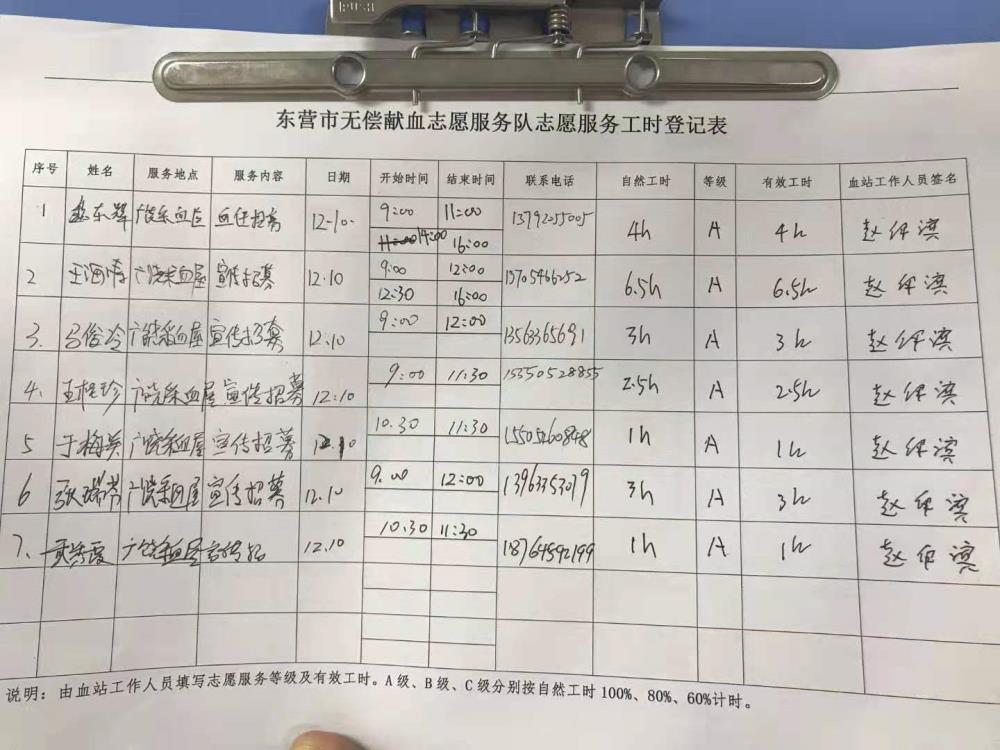 东营市无偿献血志愿服务队志愿服务工时登记表
序号 姓名 服务地点 服务内容 日期 开始时间 结束时间 联系电话 自然工时 等级 有效工时 血站工作人员签名
1 东 12-10 9:00 11:00 13792055005 4h A 4h 赵
14:00 16:00
2 王海 广饶采血屋 宣传招募 12.10 9:00 12:00 13705466252 6.5h A 6.5h 赵
12:30 16:00
3. 马俊 广饶采血屋 宣传招募 12.10 9:00 12:00 13563365691 3h A 3h 赵
4. 王桂珍 广饶采血屋 宣传招募 12.10 9:00 11:30 15550528855 2.5h A 2.5h 赵
5 于梅 广饶采血屋 宣传招募 12.10 10.30 11:30 15505260848 1h A 1h 赵
6 张瑞 广饶采血屋 宣传招募 12.10 9.00 12:00 13963353079 3h A 3h 赵
7、 广饶采血屋 12.10 10.30 11:30 18764592199 1h A 1h 赵
说明：由血站工作人员填写志愿服务等级及有效工时。A级、B级、C级分别按自然工时100%、80%、60%计时。